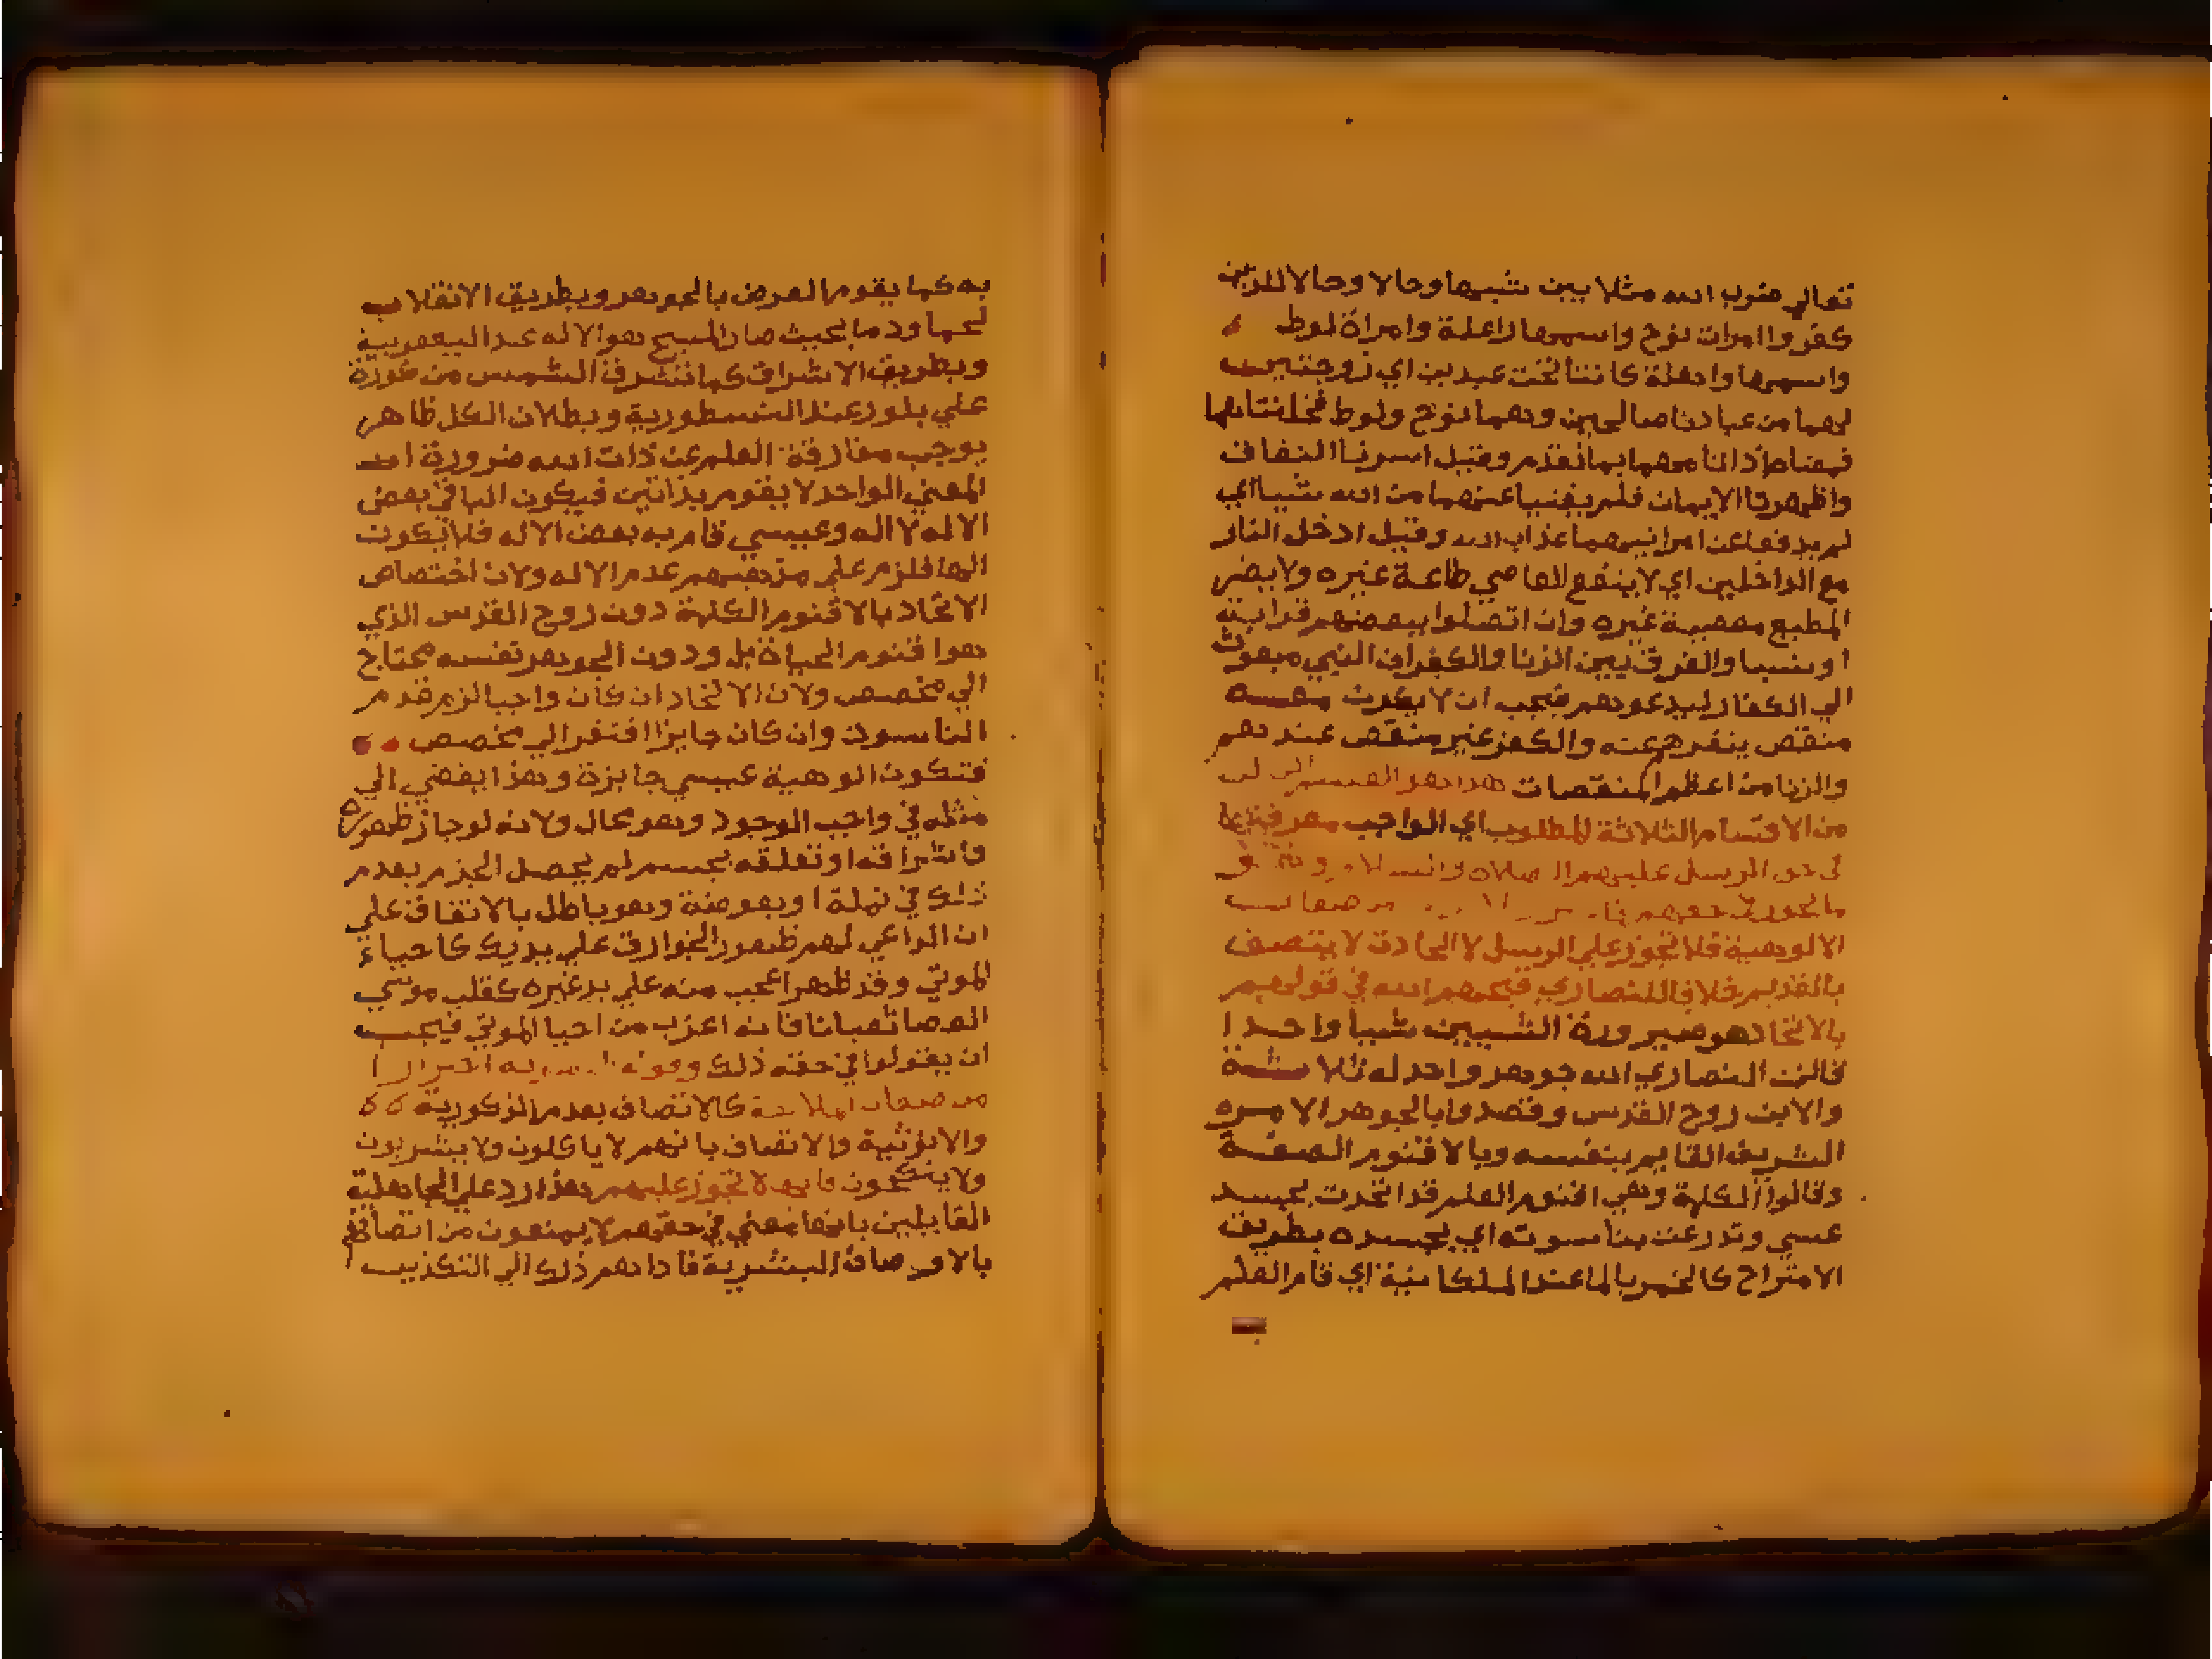 تعالي ضرب الله مثلا بين شبها وحالا وحالا للذين
كفروا امرات نوح واسمها راعلة وامراة لوط
واسمها واهلة كانتا تحت عبدين اي زوجتين
لهما من عبادنا صالحين وهما نوح ولوط فخانتاهما
بما تقدم وقيل اسرتا النفاق
واظهرتا الايمان فلم يغنيا عنهما من الله شيا اي
لم يدفعا عن امراتيهما عذاب الله وقيل ادخلا النار
مع الداخلين اي لا ينفع العاصي طاعة غيره ولا يضر
المطيع معصية غيره وان اتصلوا ببعضهم قرابة
او نسبا والفرق بين الزنا والكفر ان النبي مبعوث
الي الكفار ليدعوهم فيجب ان لا يكون معه
منقص ينفرهم عنه والكفر غير منقص عندهم
والزنا من اعظم المنقصات هذا هو القسم
من الاقسام الثلاثة المطلوب اي الواجب معرفتها
الرسل عليهم الصلاة والسلام
ما يجوز في حقهم
الالوهية فلا تجوز علي الرسل لا الحادث لا يتصف
بالقديم خلافا للنصاري قبحهم الله في قولهم
بالاتحاد هو صيرورة الشيين شيا واحدا
قالت النصاري الله جوهر واحد له ثلاثة
والابن روح القدس وقصدوا بالجوهر الامر
الشريف القايم بنفسه وبالاقنوم الصفة
وقالوا الكلمة وهي اقنوم العلم قد اتحدت بجسد
عسي وتدرعت بناسوته اي بجسده بطريق
الامتراج كالخمر بالما عند الملكانية اي قام العلم
به كما يقوم العرض بالجوهر وبطريق الانقلاب
لحما ودما بحيث صار المسيح هو الاله عند اليعقوبية
وبطريق الاشراق كما تشرق الشمس من كوة
علي بلور عند النسطورية وبطلان الكل ظاهر
يوجب مفارقة العلم عن ذات الله ضرورة ان
المعني الواحد لا يقوم بذاتين فيكون الباقي بعض
الاله لا اله وعيسي قام به بعض الاله فلا يكون
الها فلزم علي مذهبهم عدم الاله ولان اختصاص
الاتحاد بالاقنوم الكلمة دون روح القدس الذي
هو اقنوم الحياة بل ودون الجوهر نفسه محتاج
الي مخصص ولان الاتحاد ان كان واجبا لزم قدم
الناسوت وان كان جايزا افتقر الي مخصص
فتكون الوهية عيسي جايزة وهذا يفضي الي
مثله في واجب الوجود وهو محال ولانه لو جاز ظهوره
واشراقه او تعلقه بجسم لم يحصل الجزم بعدم
ذلك في نملة او بعوضة وهو باطل بالاتفاق علي
ان الداعي لهم ظهور الخوارق علي يديه كاحياء
الموتي وقد ظهر اعجب منه علي يد غيره كقلب موسي
العصا ثعبانا فانه اغرب من احيا الموتي فيجب
ان يقولوا في حقه ذلك
من صفات الملائكة كالاتصاف بعدم الذكورية
والانوثية والاتصاف بانهم لا ياكلون ولا يشربون
ولا ينكحون فانها لا تجوز عليهم هذا رد علي الجاهلية
القايلين بانها في حقهم لا يمنعون من اتصافهم
بالاوصاف البشرية فاداهم ذلك الي التكذيب